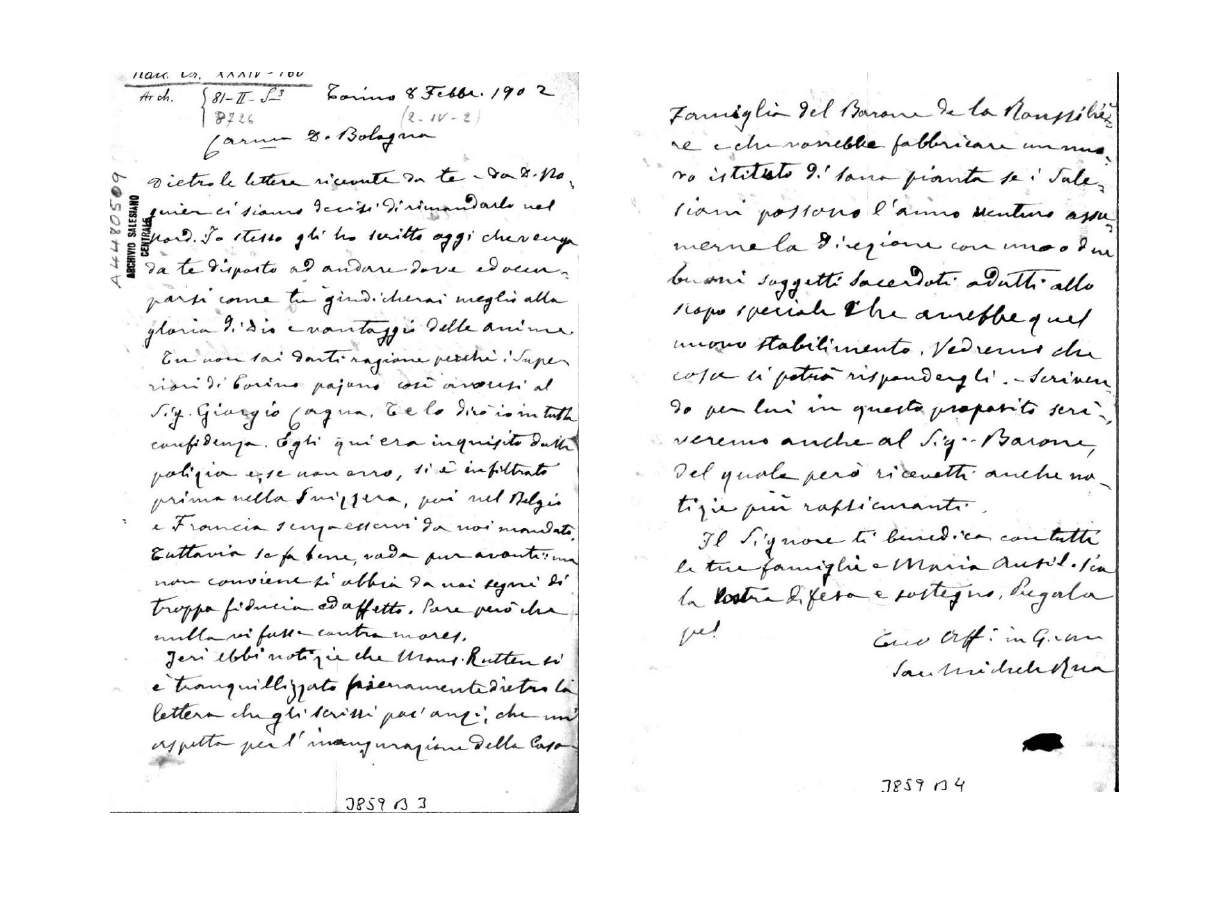 XXXIV-100
Arch. 81-II-S3
8726
(2-IV-2)
Torino 8 Febbr. 1902
Carmo D. Bologna
A4480509
ARCHIVIO SALESIANO
CENTRALE
Dietro le lettere ricevute da te e da D. Ro,
quier ci siamo decisi di rimandarlo nel
Nord. Io stesso gli ho scritto oggi che venga
da te disposto ad andare dove ed occu-
parsi come tu giudicherai meglio alla
gloria di Dio e vantaggio delle anime.
Tu non sai darti ragione perchè i Supe-
riori di Torino pajano così avversi al
Sig. Giorgio Cagna. Te lo dirò io in tutta
confidenza. Egli qui era inquisito dalla
polizia e, se non erro, si è infiltrato
prima nella Svizzera, poi nel Belgio
e Francia senza esservi da noi mandato.
Tuttavia se fa bene, vada pur avanti: ma
non conviene si abbia da noi segni di
troppa fiducia ed affetto. Pare però che
nulla vi fosse contra mores.
Jeri ebbi notizie che Mons. Rutten si
è tranquillizzato pienamente dietro la
lettera che gli scrissi poc'anzi; che mi
aspetta per l'inaugurazione della Casa
J859 B 3
Famiglia del Barone de la Roussiliè,
re e che vorrebbe fabbricare un nuo,
vo istituto di sana pianta se i Sale,
siani possono l'anno venturo assu,
merne la Direzione con uno o due
buoni soggetti Sacerdoti adatti allo
scopo speciale che avrebbe quel
nuovo stabilimento. Vedremo che
cosa si potrà rispondergli. - Scriven-
do per lui in questo proposito scri-,
veremo anche al Sig. Barone,
del quale però ricevetti anche no-
tizie più rassicuranti.
Il Signore ti benedica con tutte
le tue famiglie e Maria Ausil. sia
la vostra difesa e sostegno. Pregala
pel
Tuo Aff. in G. con
Sac. Michele Rua
J859 B 4